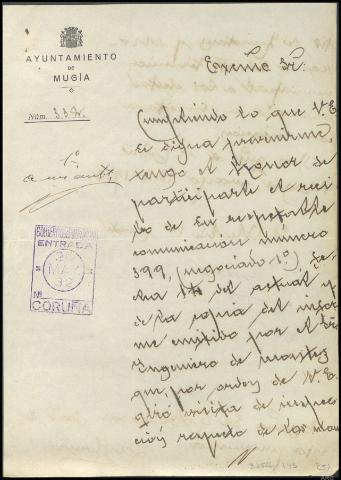 AYUNTAMIENTO
DE
MUGÍA
Núm. 332.
Excmo Sr:
Cumpliendo lo que V.E.
se digna prevenirme,
tengo el honor de
participarle el reci-
bo de su respetable
comunicacion número
399, (negociado 1º.) fe-
cha 14 del actual y
de la copia del infor-
me emitido por el Sr.
Ingeniero de montes
que, por orden de V.E.
giró visita de inspec-
ción respecto de los mon
1º.
ENTRADA
MAY
32
Nº
CORUÑA